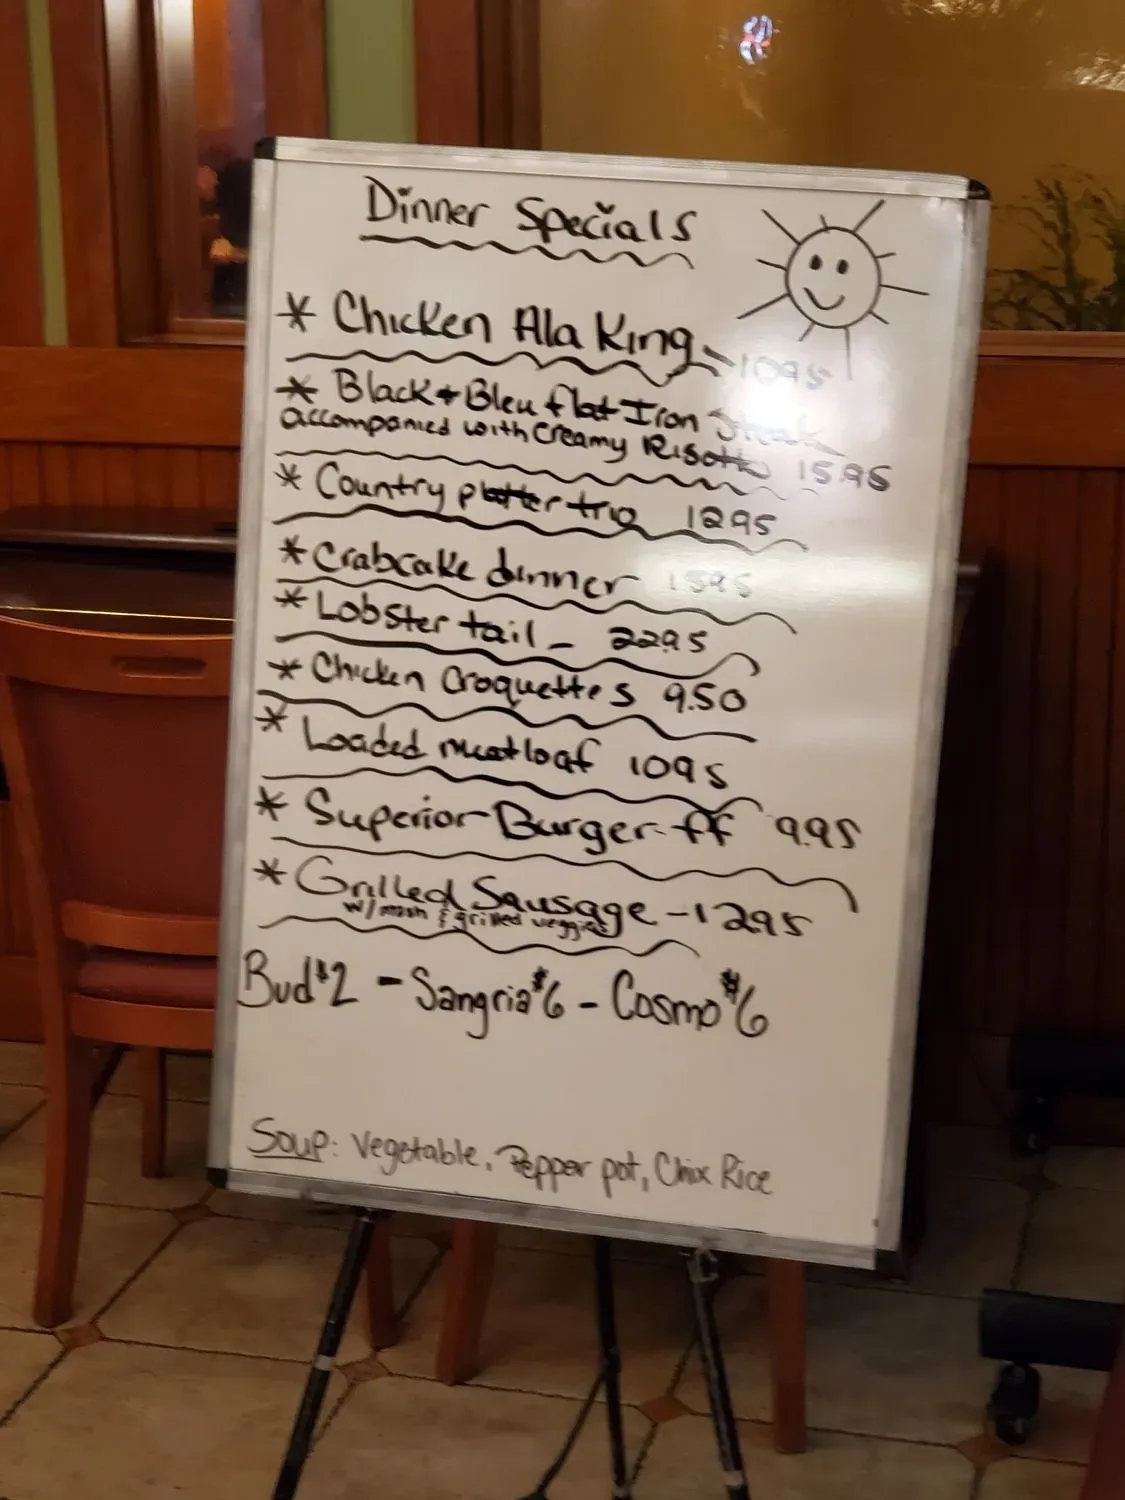 Dinner Specials
* Chicken Ala King - 1095
* Black & Bleu flat Iron Steak
accompanied with Creamy Risotto 15.95
* Country platter trio 1295
* Crabcake dinner 1595
* Lobster tail - 2295
* Chicken Croquettes 9.50
* Loaded meatloaf 1095
* Superior Burger-ff 9.95
* Grilled Sausage - 1295
w/mash & grilled veggies
Bud $2 - Sangria $6 - Cosmo $6
Soup: Vegetable, Pepper pot, Chix Rice